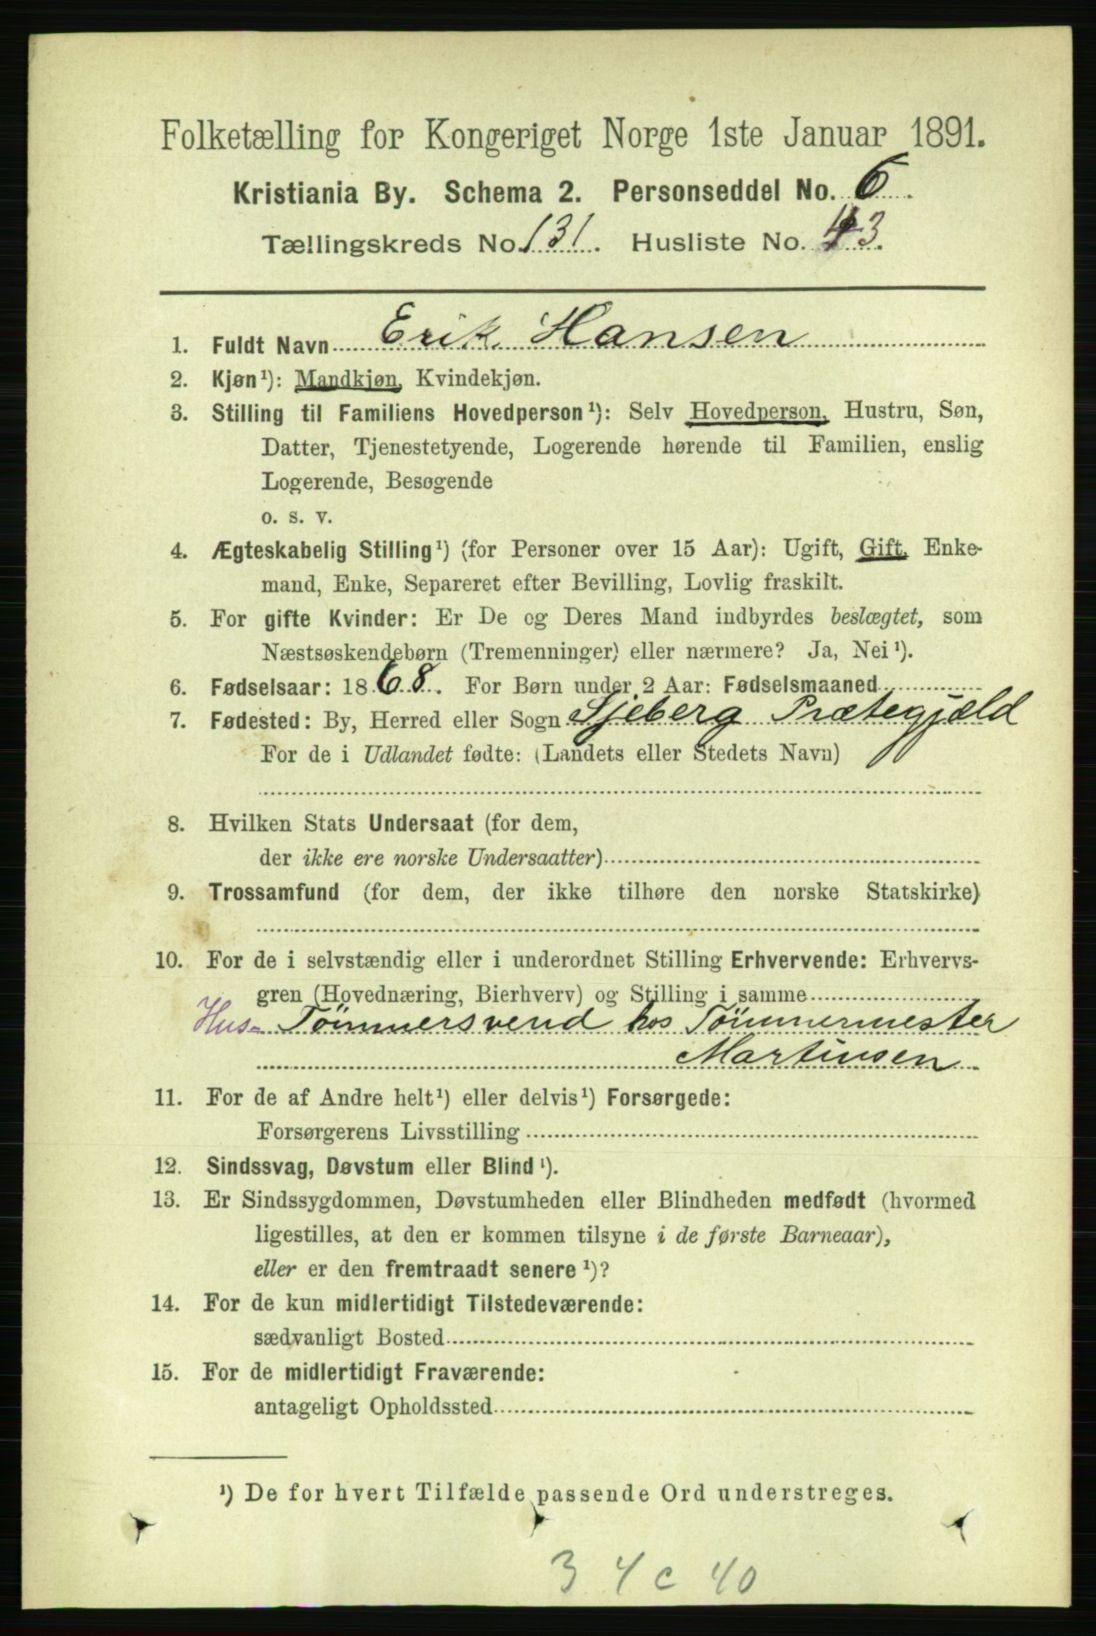 Folketælling for Kongeriget Norge 1ste Januar 1891.
Kristiania By. Schema 2. Personseddel No. 6.
Tællingskreds No. 131. Husliste No. 43.
1. Fuldt Navn Erik Hansen
2. Kjøn¹): Mandkjøn, Kvindekjøn.
3. Stilling til Familiens Hovedperson¹): Selv Hovedperson, Hustru, Søn,
Datter, Tjenestetyende, Logerende hørende til Familien, enslig
Logerende, Besøgende
o. s. v.
4. Ægteskabelig Stilling¹) (for Personer over 15 Aar): Ugift, Gift, Enke-
mand, Enke, Separeret efter Bevilling, Lovlig fraskilt.
5. For gifte Kvinder: Er De og Deres Mand indbyrdes beslægtet, som
Næstsøskendebørn (Tremenninger) eller nærmere? Ja, Nei¹).
6. Fødselsaar: 1868. For Børn under 2 Aar: Fødselsmaaned
7. Fødested: By, Herred eller Sogn Sjeberg Prætegjæld
For de i Udlandet fødte: (Landets eller Stedets Navn)
8. Hvilken Stats Undersaat (for dem,
der ikke ere norske Undersaatter)
9. Trossamfund (for dem, der ikke tilhøre den norske Statskirke)
10. For de i selvstændig eller i underordnet Stilling Erhvervende: Erhvervs-
gren (Hovednæring, Bierhverv) og Stilling i samme
Hus- Tömmersvend hos Tömmermester
Martinsen
11. For de af Andre helt¹) eller delvis¹) Forsørgede:
Forsørgerens Livsstilling
12. Sindssvag, Døvstum eller Blind¹).
13. Er Sindssygdommen, Døvstumheden eller Blindheden medfødt (hvormed
ligestilles, at den er kommen tilsyne i de første Barneaar),
eller er den fremtraadt senere¹)?
14. For de kun midlertidigt Tilstedeværende:
sædvanligt Bosted
15. For de midlertidigt Fraværende:
antageligt Opholdssted
¹) De for hvert Tilfælde passende Ord understreges.
3 4 c 40